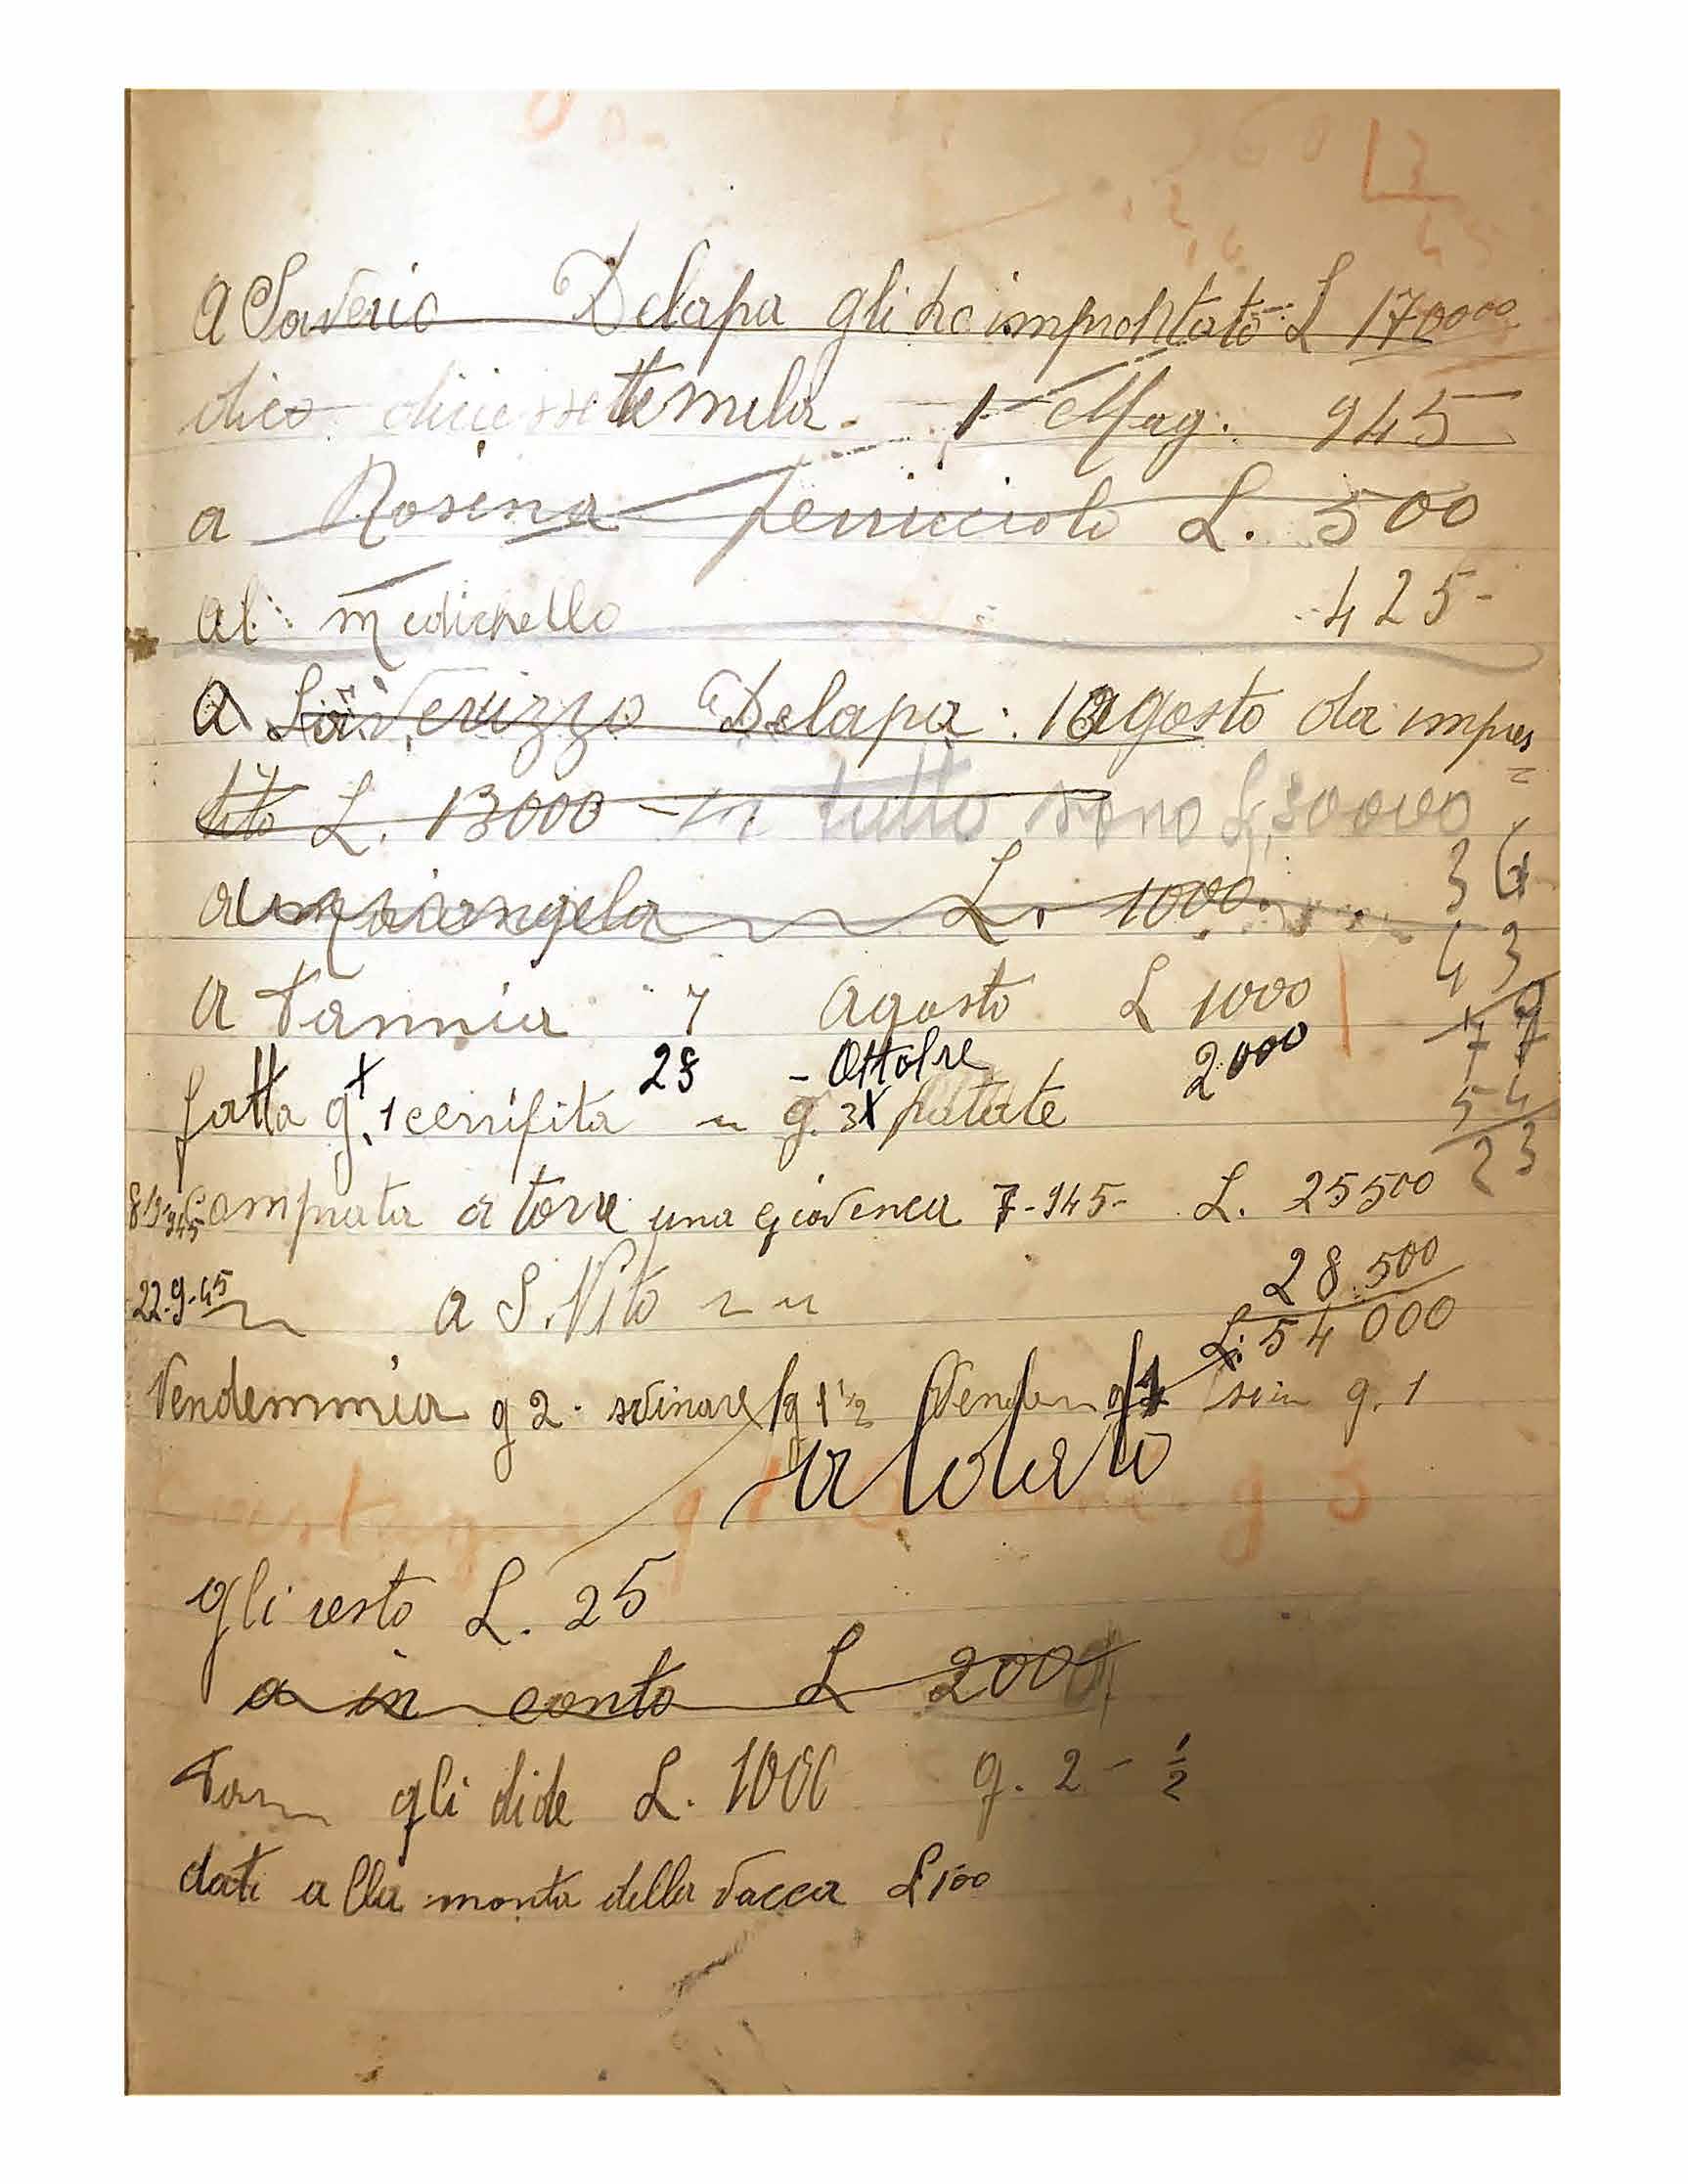 360 13
a Saverio Delapa gli ho imprestato L 170000
dico diciessettemila 1 Mag. 945
a Rosina L. 500
al medichello 425-
A Saverizzo Delapa: 18 agosto da impres
tito L. 13000 - in tutto sono L. 30000
36
a Mariangela L. 1000
43
a Tannia 7 Agosto L 1000
77
28 - Ottobre 2000
fatta g. 1 cerrifita ~ g. 3 patate
54
23
Comprata a torre una giovenca 7-945- L. 25500
28.500
22-9-45 a S. Vito
L. 54000
Vendemmia g 2. svinare g 1 1/2 Vendem g. 1
g 3
gli resto L. 25
a in conto L 2000
Tan gli dide L. 1000 g. 2 - 1/2
dati alla monta della vacca £ 100